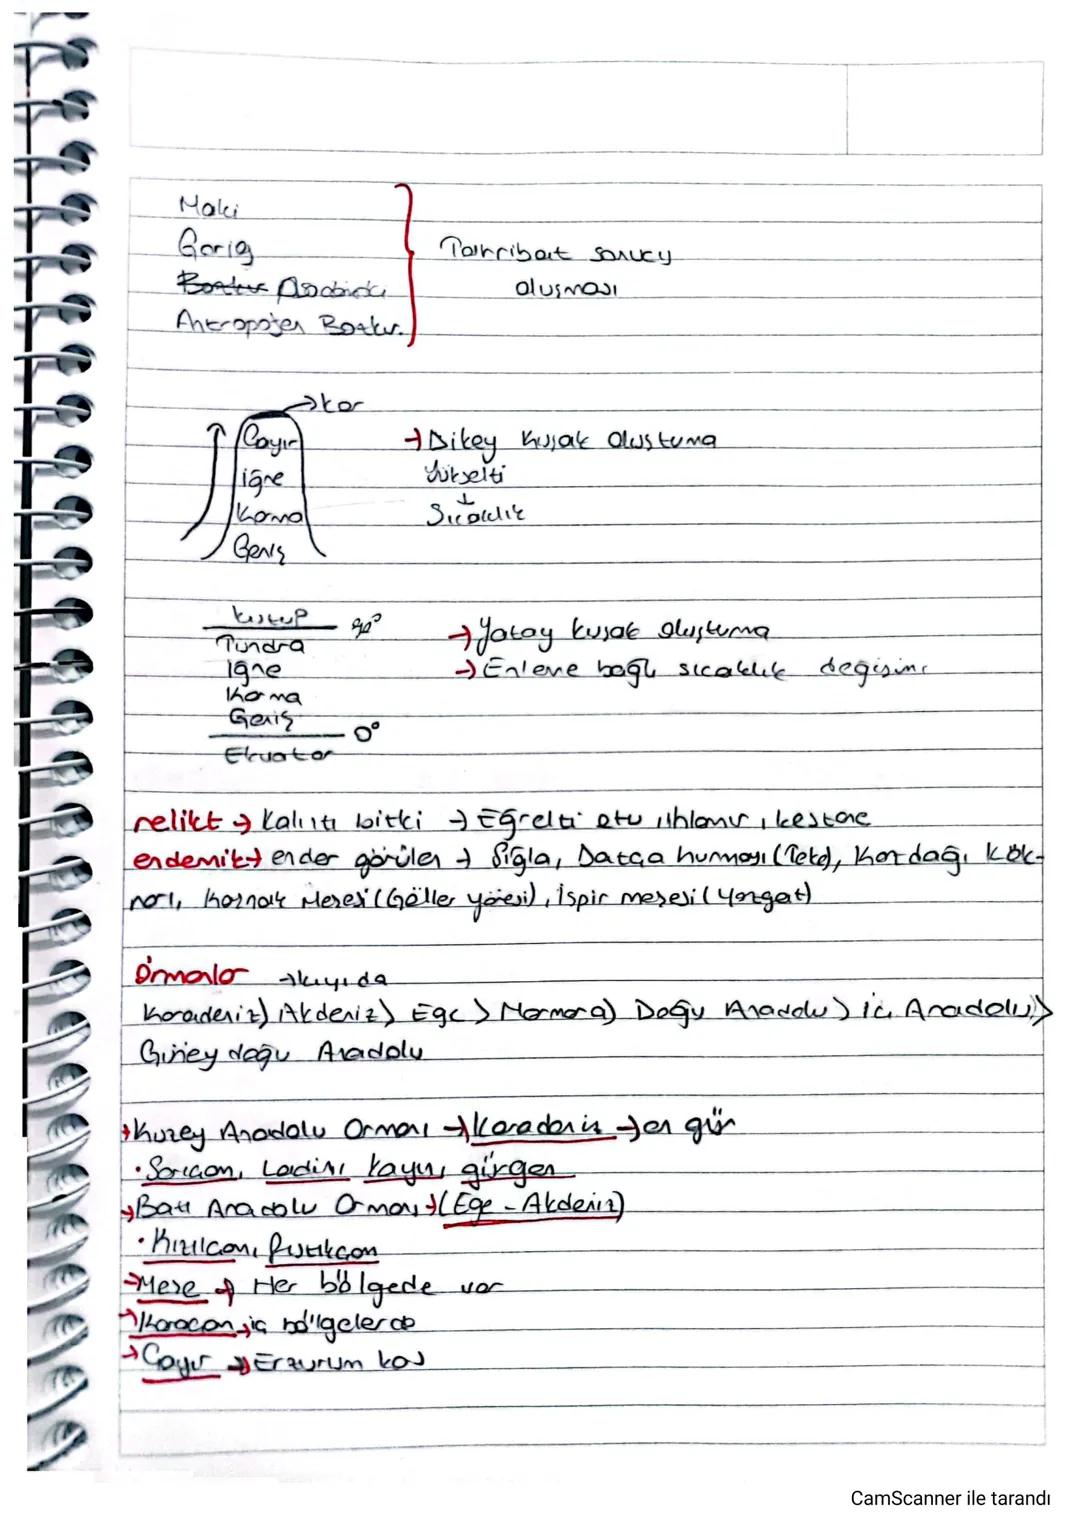 Maki
Garig
Psödomaki
Antropojen Bozkır.
Tahribat sonucu
oluşması
→kar
Çayır
iğne
Karma
Geniş
→Dikey kuşak oluşturma
Yükselti
↓
Sıcaklık
kutup 90°
Tundra
İğne
Karma
Geniş
0°
Ekvator
→Yatay kuşak oluşturma
→Enleme bağlı sıcaklık değişimi
relikt → Kalıntı bitki → Eğrelti otu, ıhlamur, kestane
endemik→ ender görülen → Sığla, Datça hurması (Teke), Kazdağı Kök-
narı, Kasnak Meşesi (Göller yöresi), İspir meşesi (Yozgat)
Ormanlar →kıyıda
Karadeniz > Akdeniz > Ege > Marmara > Doğu Anadolu > İç Anadolu >
Güneydoğu Anadolu
→Kuzey Anadolu Ormanı →Karadeniz →en gür
•Sarıçam, Ladin, kayın, gürgen
→Batı Anadolu Ormanı→(Ege - Akdeniz)
•Kızılçam, fıstıkçam
→Meşe → Her bölgede var
→Karaçam→iç bölgelerde
→Çayır →Erzurum kars
CamScanner ile tarandı